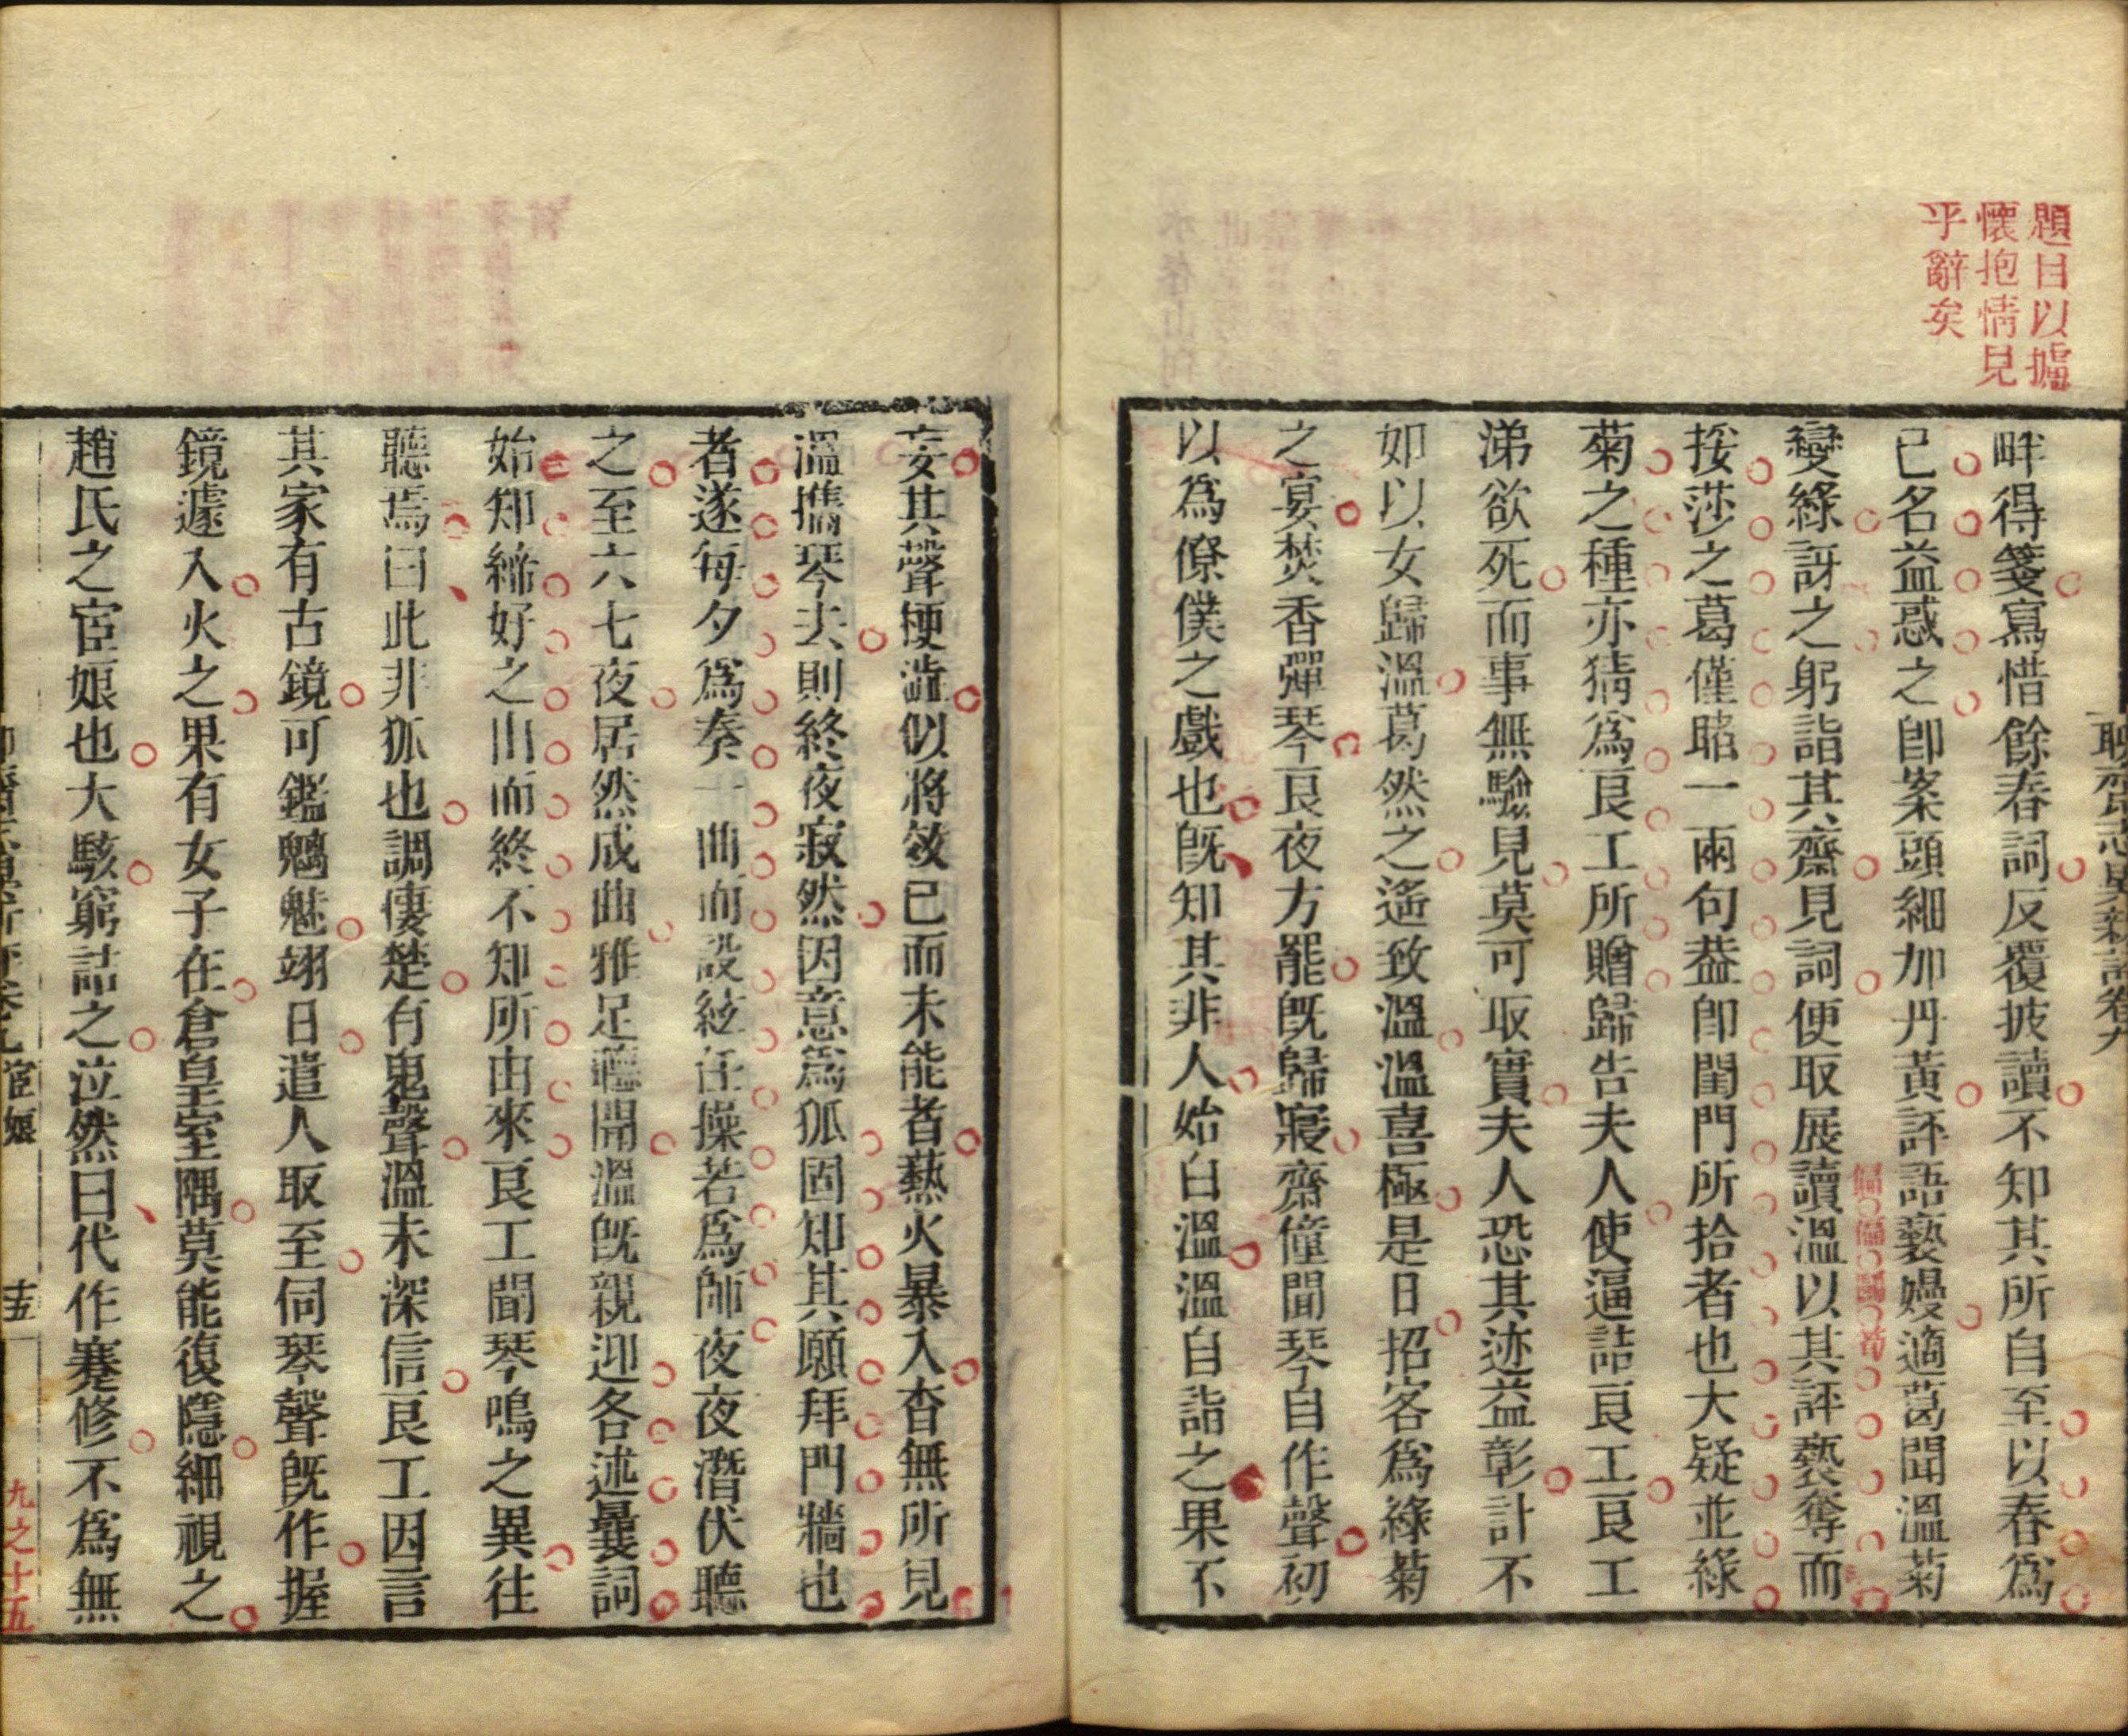 題目以攄
懷抱情見
乎辭矣
畔得箋寫惜餘春詞反覆披讀不知其所自至以春爲
己名益惑之卽案頭細加丹黃評語褻嫚適葛聞溫菊
變綠訝之躬詣其齋見詞便取展讀溫以其評褻奪而
挼莎之葛僅睹一兩句葢卽閨門所拾者也大疑並綠
菊之種亦猜爲良工所贈歸告夫人使逼詰良工良工
涕欲死而事無驗見莫可取實夫人恐其迹益彰計不
如以女歸溫葛然之遙致溫溫喜極是日招客爲綠菊
之宴焚香彈琴良夜方罷旣歸寢齋僮聞琴自作聲初
以爲僚僕之戲也旣知其非人始白溫溫自詣之果不
妄其聲梗澁似將效已而未能者爇火暴入杳無所見
溫攜琴去則終夜寂然因意爲狐固知其願拜門牆也
者遂每夕爲奏一曲而設絃任操若爲師夜夜潛伏聽
之至六七夜居然成曲雅足聽聞溫旣親迎各述曩詞
始知締好之由而終不知所由來良工聞琴鳴之異往
聽焉曰此非狐也調悽楚有鬼聲溫未深信良工因言
其家有古鏡可鑑魑魅翊日遣人取至伺琴聲旣作握
鏡遽入火之果有女子在倉皇室隅莫能復隱細視之
趙氏之宦娘也大駭窮詰之泣然曰代作蹇修不爲無
宦娘
十五
九之十五